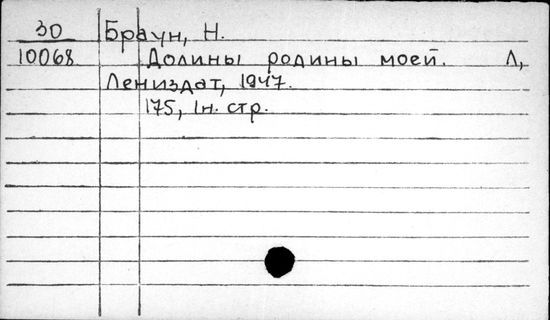 30 Браун, Н.
10068 Долины родины моей. Л,
Лениздат, 1947.
175, 1н. стр.